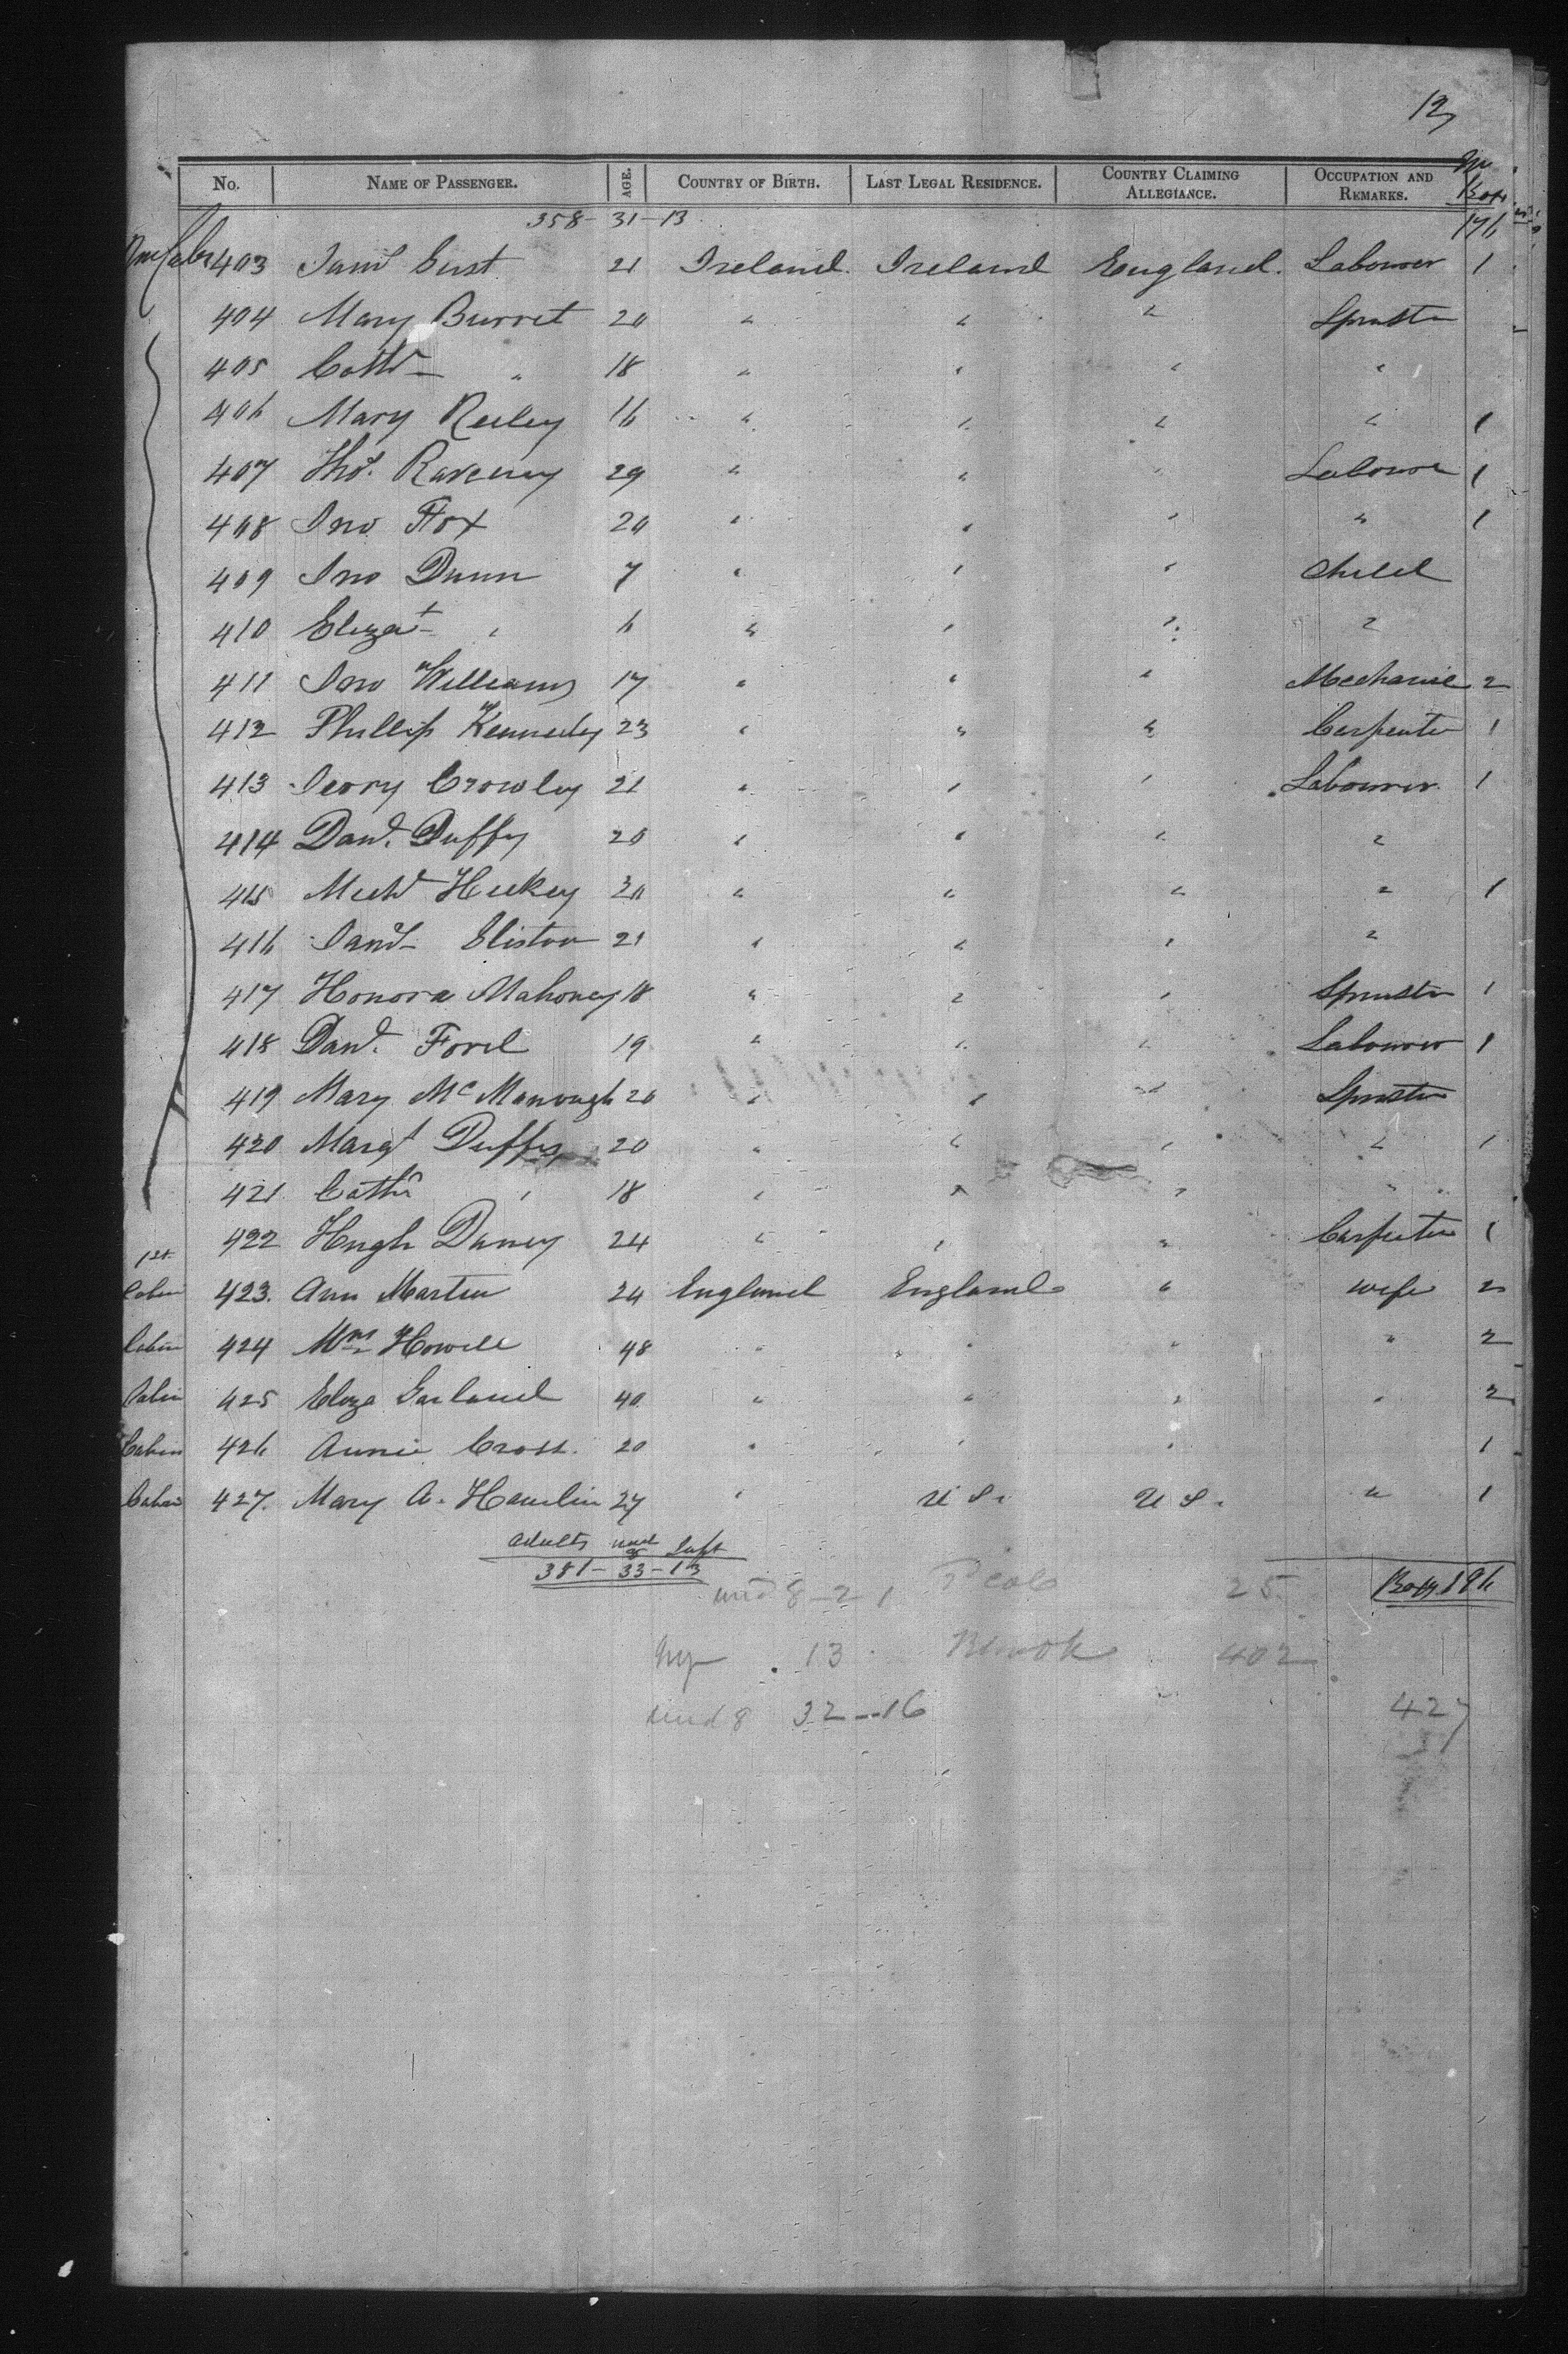 12
No. NAME OF PASSENGER. AGE. COUNTRY OF BIRTH. LAST LEGAL RESIDENCE. COUNTRY CLAIMING ALLEGIANCE. OCCUPATION AND REMARKS.
358 - 31 - 13 176
403 21 Ireland. Ireland England. Labourer 1
404 Mary Burret 20 " " " Spinster
405 " 18 " " " "
406 Mary Reiley 16 " " " " 1
407 Thos. Raveney 29 " " " Labourer 1
408 Jno Fox 20 " " " " 1
409 Jno Dunn 7 " " " Child
410 Elizat " 6 " " " "
411 Jno Williams 17 " " " Mechanic 2
412 Phillip Kennedy 23 " " " Carpenter 1
413 Crowley 21 " " " Labourer 1
414 Danl. Duffy 20 " " " "
415 Hickey 20 " " " " 1
416 21 " " " "
417 Honora Mahoney 18 " " " Spinster 1
418 Danl. Ford 19 " " " Labourer 1
419 Mary McManough 20 " " " Spinster
420 Margt Duffy 20 " " " " 1
421 Cathn " 18 " " " "
422 Hugh Daney 24 " " " Carpenter 1
1st
Cabin 423. Ann Martin 24 England England " Wife 2
Cabin 424 Mrs Howell 48 " " " " 2
Cabin 425 Eliza Garland 40 " " " " 2
Cabin 426 Annie Cross. 20 " " " 1
Cabin 427. Mary A. Hamlin 27 " U S. U S. " 1
Adults und 8 Inft
381 - 33 - 13
und 8 - 2 1 P Cab 25
13 402
und 8 32 - 16 427